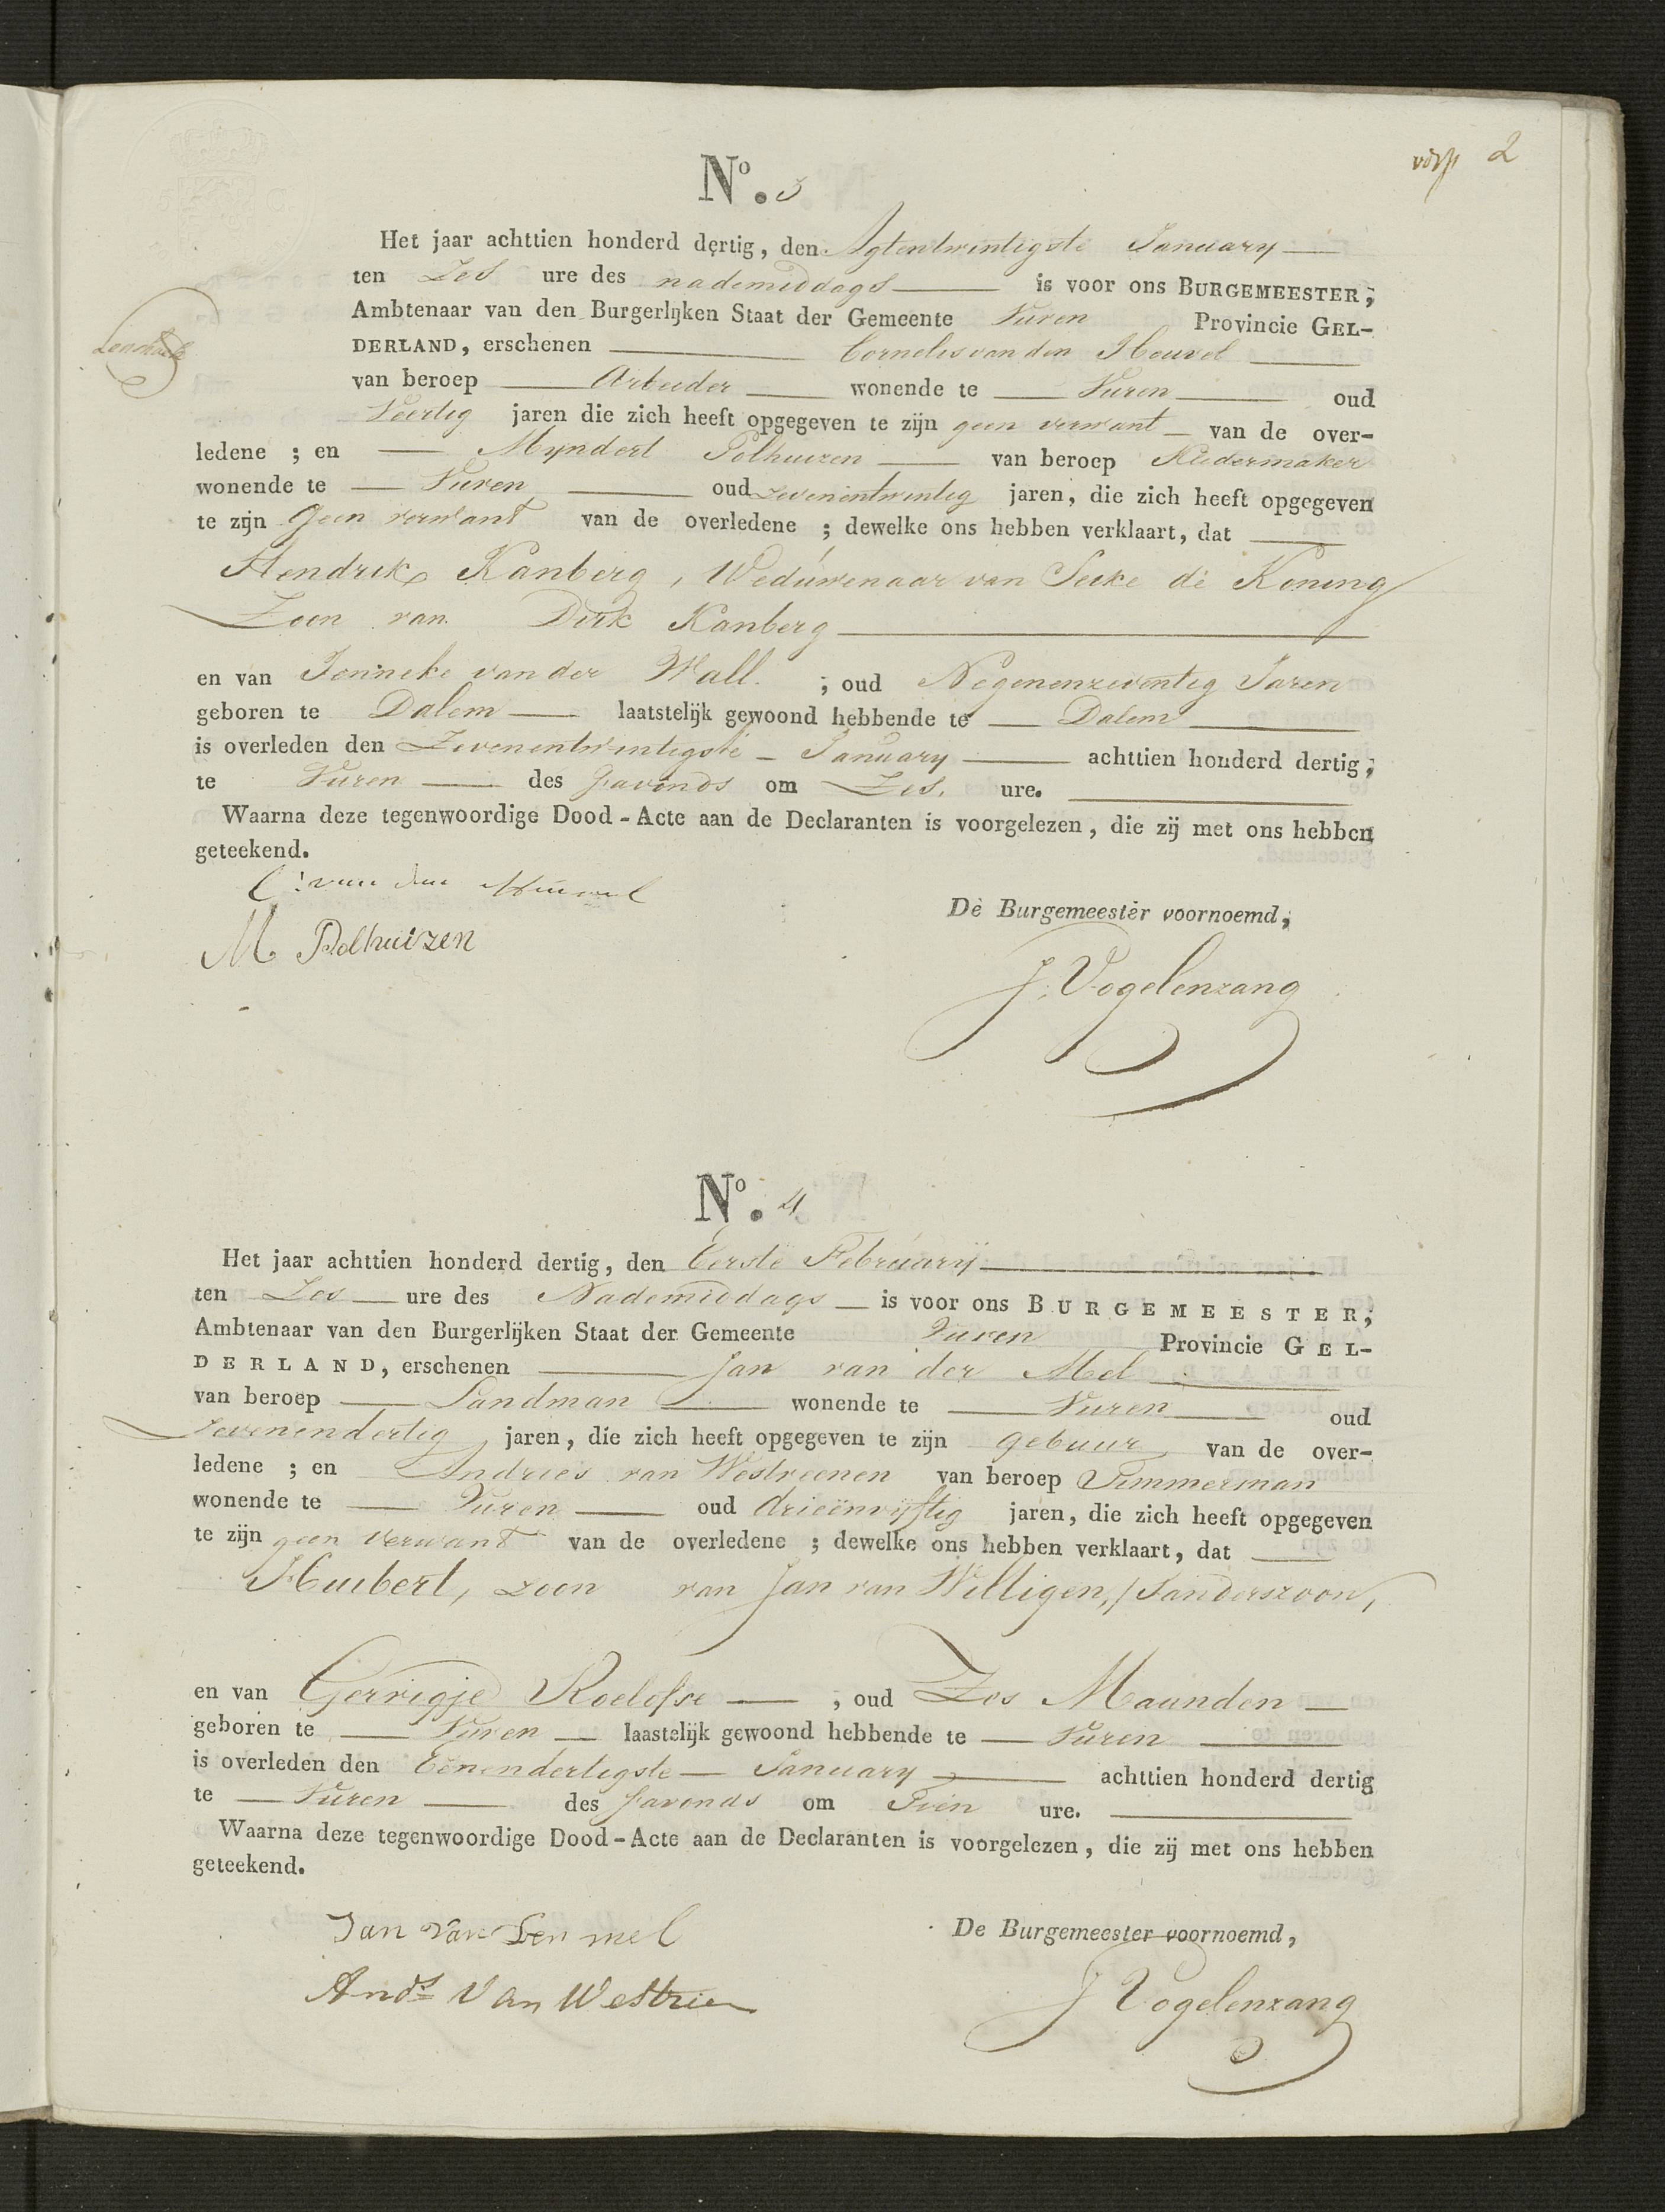 2
No. 3
Het jaar achttien honderd dertig, den Agtentwintigste January
ten Zes ure des nademiddags is voor ons BURGEMEESTER,
Ambtenaar van den Burgerlijken Staat der Gemeente Vuren Provincie GEL-
DERLAND, erschenen Cornelis van den Heuvel
van beroep Arbeider wonende te Vuren oud
Veertig jaren die zich heeft opgegeven te zijn geen verwant van de over-
ledene ; en Myndert Polhuizen van beroep Kledermaker
wonende te Vuren oud zevenentwintig jaren, die zich heeft opgegeven
te zijn Geen verwant van de overledene ; dewelke ons hebben verklaart, dat
Hendrik Kanberg, Weduwenaar van Seike de Koning
Zoon van Dirk Kanberg
en van Jenneke van der Wall. ; oud Negenenzeventig Jaren
geboren te Dalem laatstelijk gewoond hebbende te Dalem
is overleden den Zevenentwintigste January achttien honderd dertig,
te Vuren des Savonds om Zes. ure.
Waarna deze tegenwoordige Dood-Acte aan de Declaranten is voorgelezen, die zij met ons hebben
geteekend.
C: van den Heuvel
De Burgemeester voornoemd,
M Polhuizen
J. Vogelenzang
No. 4
Het jaar achttien honderd dertig, den Eerste Februarij
ten Zes ure des Nademiddags is voor ons BURGEMEESTER,
Ambtenaar van den Burgerlijken Staat der Gemeente Vuren Provincie GEL-
DERLAND, erschenen Jan van der Mel
van beroep Landman wonende te Vuren oud
Zevenendertig jaren, die zich heeft opgegeven te zijn gebuur van de over-
ledene ; en Andries van Westreenen van beroep Timmerman
wonende te Vuren oud drieënvijftig jaren, die zich heeft opgegeven
te zijn geen verwant van de overledene ; dewelke ons hebben verklaart, dat
Huibert, zoon van Jan van Willigen, / Sanderszoon,
en van Gerrigje Roelofse ; oud Zes Maanden
geboren te Vuren laastelijk gewoond hebbende te Vuren
is overleden den Eenendertigste January achttien honderd dertig
te Vuren des Savonds om Tien ure.
Waarna deze tegenwoordige Dood-Acte aan de Declaranten is voorgelezen, die zij met ons hebben
geteekend.
Jan van Der mel
De Burgemeester voornoemd,
Ands Van Westrien
J Vogelenzang